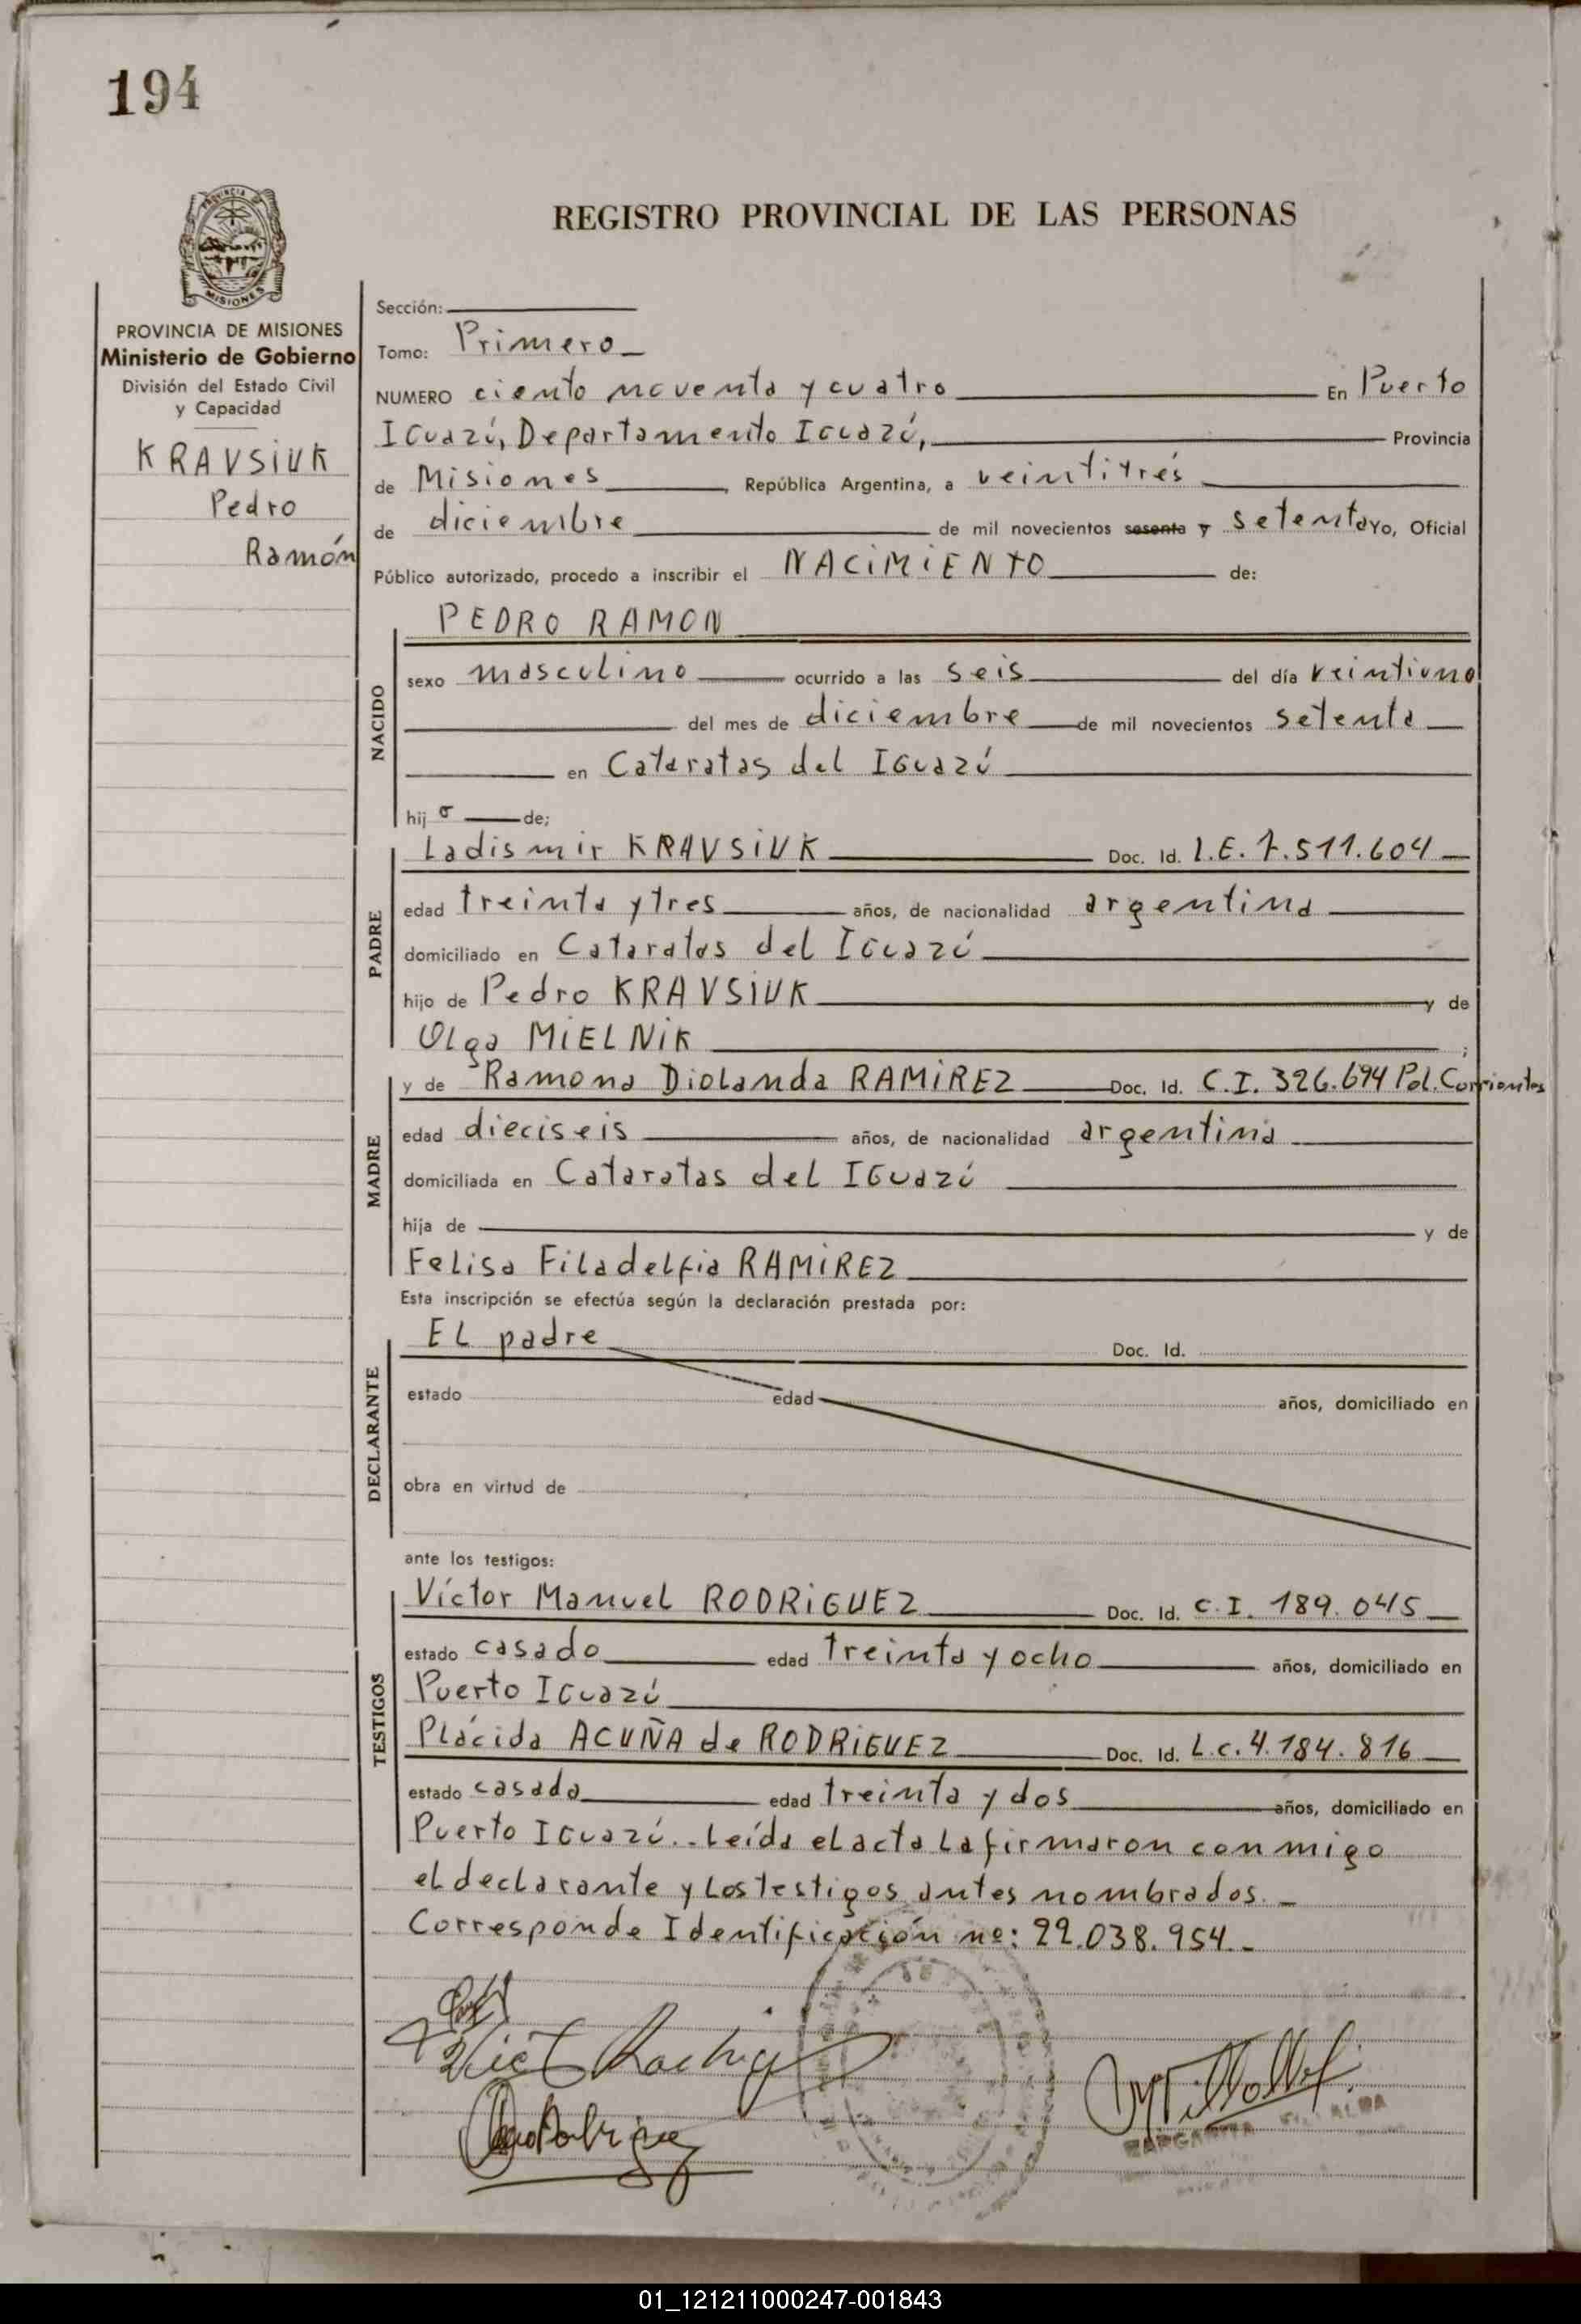 194
REGISTRO PROVINCIAL DE LAS PERSONAS
PROVINCIA DE MISIONES
Ministerio de Gobierno
División del Estado Civil
y Capacidad
KRAVSIUK
Pedro
Ramón
Sección:
Tomo: Primero
NUMERO ciento noventa y cuatro En Puerto
Iguazú, Departamento Iguazú, Provincia
de Misiones, República Argentina, a veintitrés
de diciembre de mil novecientos sesenta y setenta Yo, Oficial
Público autorizado, procedo a inscribir el NACIMIENTO de:
NACIDO
PEDRO RAMON
sexo masculino ocurrido a las seis del día veintiuno
del mes de diciembre de mil novecientos setenta
en Cataratas del Iguazú
hijo de;
PADRE
Ladismir KRAVSIUK Doc. Id. L.E. 7.511.604
edad treinta y tres años, de nacionalidad argentina
domiciliado en Cataratas del Iguazú
hijo de Pedro KRAVSIUK y de
Olga MIELNIK ;
MADRE
y de Ramona Diolanda RAMIREZ Doc. Id. C.I. 326.694 Pol. Corrientes
edad dieciseis años, de nacionalidad argentina
domiciliada en Cataratas del Iguazú
hija de y de
Felisa Filadelfia RAMIREZ
Esta inscripción se efectúa según la declaración prestada por:
DECLARANTE
El padre Doc. Id.
estado edad años, domiciliado en
obra en virtud de
ante los testigos:
TESTIGOS
Víctor Manuel RODRIGUEZ Doc. Id. C.I. 189.045
estado casado edad treinta y ocho años, domiciliado en
Puerto Iguazú
Plácida ACUÑA de RODRIGUEZ Doc. Id. L.C. 4.184.816
estado casada edad treinta y dos años, domiciliado en
Puerto Iguazú.- Leída el acta la firmaron conmigo
el declarante y los testigos antes nombrados.-
Corresponde Identificación nº: 22.038.954.-
01_121211000247-001843